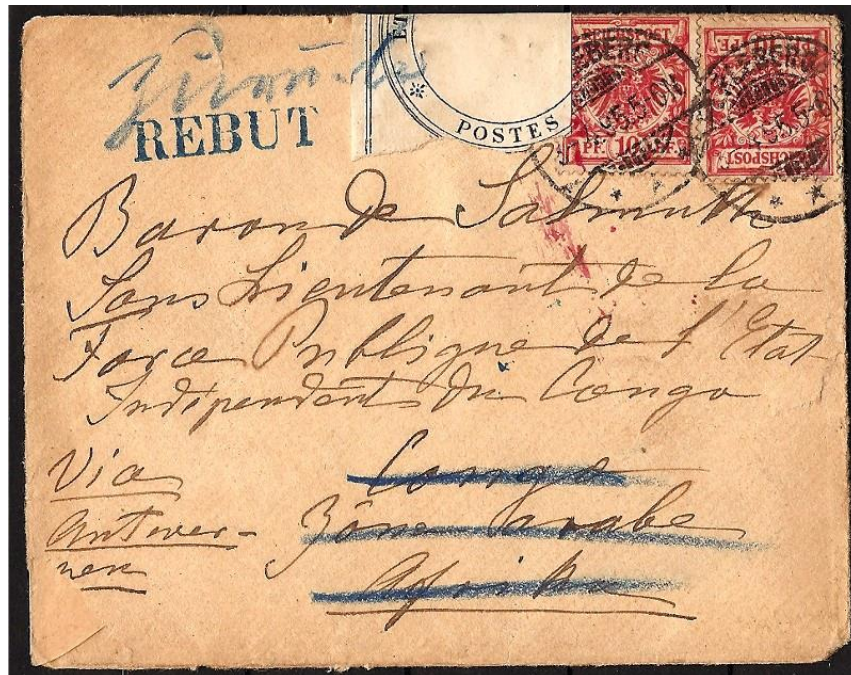 zurück
REBUT
ET
POSTES
REICHSPOST
PF. 10 PF.
REICHSPOST
Baron de Salmuth
Sous Lieutenant de la
Force Publique de l'Etat
Indépendant du Congo
Via
Antwer-
pen
Congo
Zône arabe
Afrika